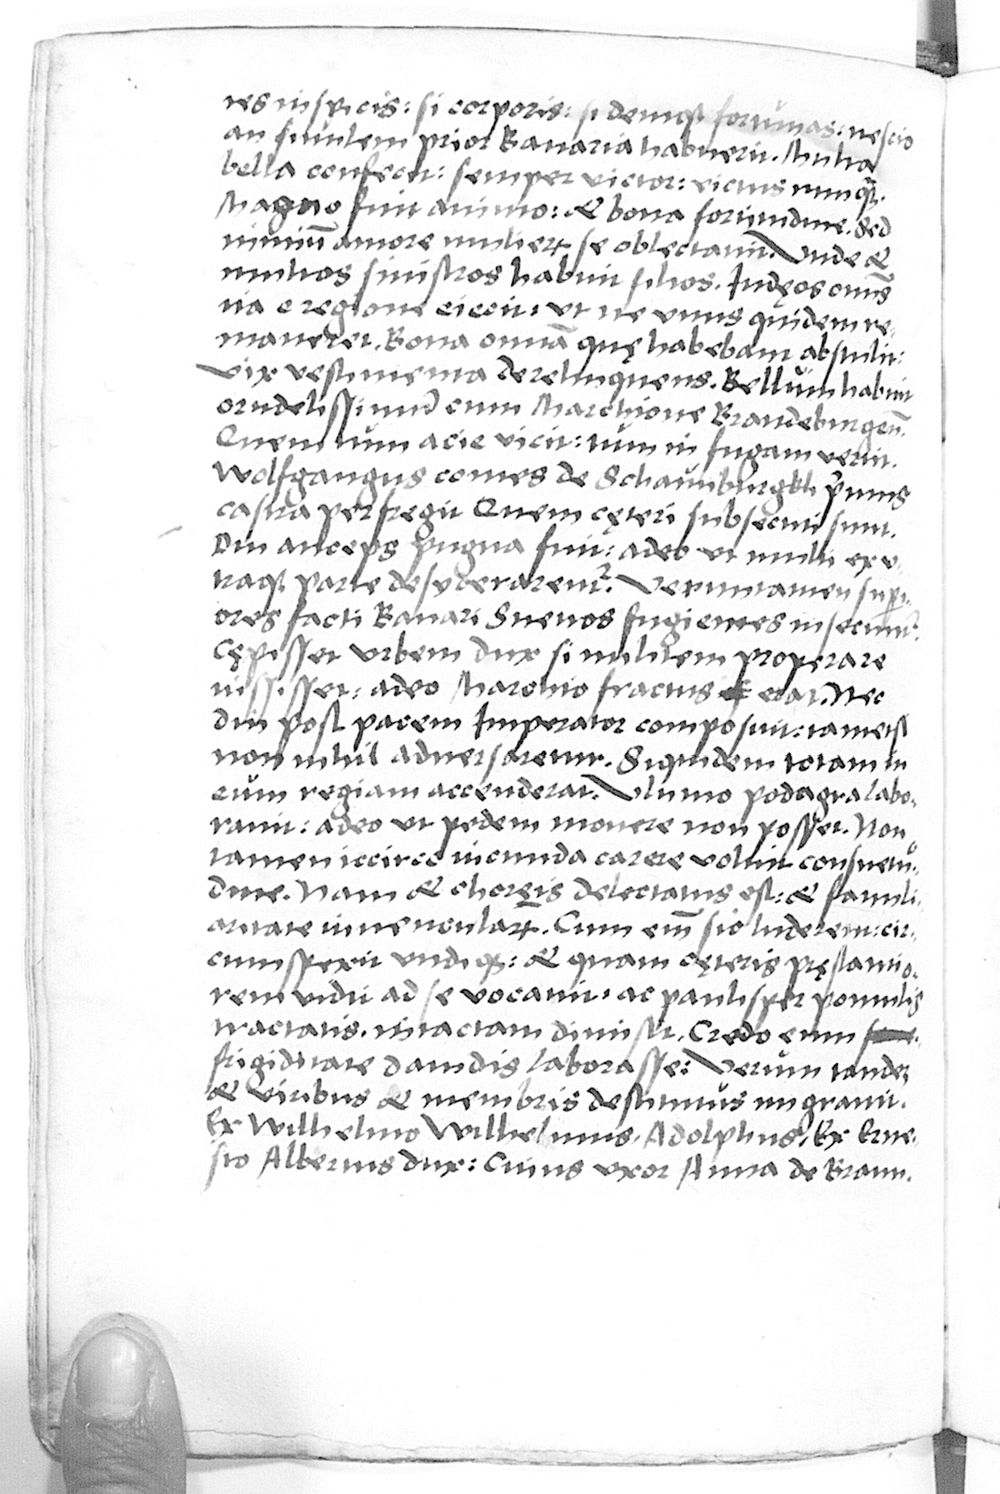 res inspicis: si corporis: si deniqꝫ fortunas: nescio
an similem prior Bauaria habuerit. Multa
bella confecit: semper victor: victus nunqꝫ.
Magno fuit animo: & bona fortitudine. Sed
nimiū amore mulierꝝ se oblectauit. Vnde &
multos sinistros habuit filios. Iudęos omīs
na e regione eiecit: vt ne vnus quidem re-
maneret. Bona omnia quę habebant abstulit:
vix vestimenta derelinquens. Bellum habuit
crudelissimū cum Marchione Brandeburgen̄.
Quem tum acie vicit: tum in fugam vertit.
Wolfgangus comes de Schaunburgkh primus
castra perfregit Quem cęteri subsecuti sunt.
Diu anceps pugna fuit: adeo vt multi ex v-
traqꝫ parte desyderarent᷑. Veruntamen supi-
ores facti Bauari Sueuos fugientes insecunt᷑.
Cępisset vrbem dux si militem properare
iussisset: adeo Marchio fractus erat. Nec
diu post pacem Imperator composuit: tametsi
non nihil aduersaretur. Siquidem totam in
eum regiam accenderat. Vltimo podagra labo-
rauit: adeo vt pedem mouere non posset. Non
tamen iccirco iucunda carere voluit consuetu-
dine. Nam & choręis delectatus est: & famili-
aritate iuuenculaꝝ. Cum em̄ sic luderent: cir-
cumspexit vndiqꝫ: & quam cęteris pręstantio-
rem vidit ad se vocauit: ac paulisper pomulis
tractatis. intactam dimisit. Credo eum
frigiditate dauidis laborasse: Verum tandeꝫ
& viribus & membris destitutus migrauit.
Ex Wilhelmo Wilhelmus. Adolphus. Ex Erne-
sto Albertus dux: Cuius vxor Anna de Braun-